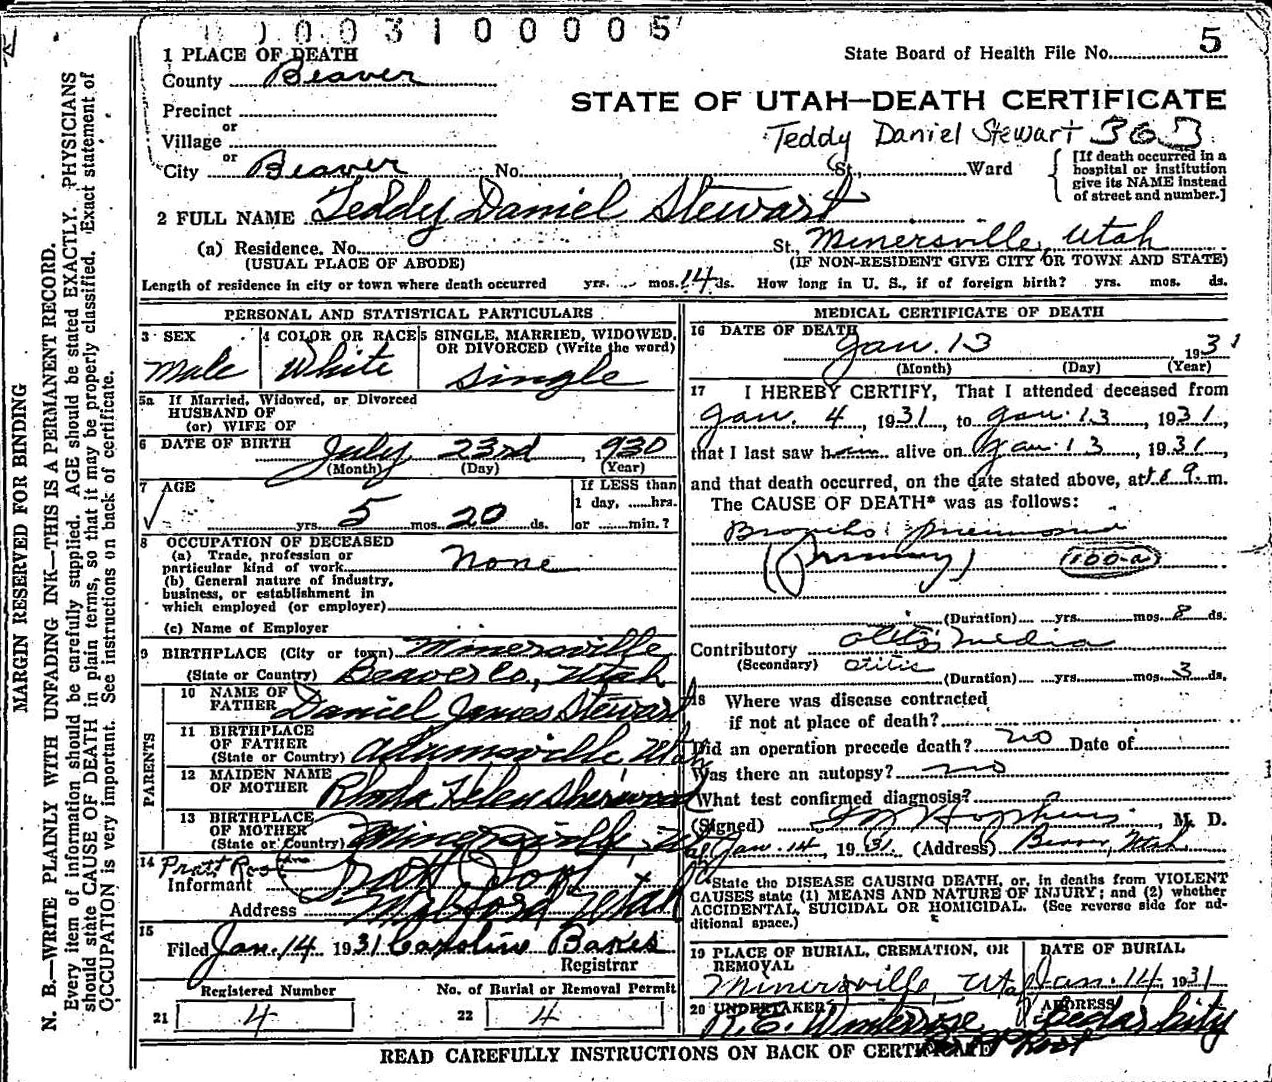 1003100005
1 PLACE OF DEATH
State Board of Health File No. 5
County Beaver
STATE OF UTAH—DEATH CERTIFICATE
Precinct
or
Village
Teddy Daniel Stewart 363
or
City Beaver No. St., Ward
[If death occurred in a
hospital or institution
give its NAME instead
of street and number.]
2 FULL NAME Teddy Daniel Stewart
(a) Residence. No. St., Minersville, Utah
(USUAL PLACE OF ABODE) (IF NON-RESIDENT GIVE CITY OR TOWN AND STATE)
Length of residence in city or town where death occurred yrs. mos. 14 ds. How long in U. S., if of foreign birth? yrs. mos. ds.
PERSONAL AND STATISTICAL PARTICULARS
3 SEX
Male
4 COLOR OR RACE
White
5 SINGLE, MARRIED, WIDOWED,
OR DIVORCED (Write the word)
Single
5a If Married, Widowed, or Divorced
HUSBAND OF
(or) WIFE OF
6 DATE OF BIRTH July 23rd, 1930
(Month) (Day) (Year)
7 AGE
yrs. 5 mos. 20 ds.
If LESS than
1 day, hrs.
or min.?
8 OCCUPATION OF DECEASED
(a) Trade, profession or
particular kind of work None
(b) General nature of industry,
business, or establishment in
which employed (or employer)
(c) Name of Employer
9 BIRTHPLACE (City or town) Minersville
(State or Country) Beaver Co, Utah
PARENTS
10 NAME OF
FATHER Daniel James Stewart
11 BIRTHPLACE
OF FATHER
(State or Country) Adamsville Utah
12 MAIDEN NAME
OF MOTHER Rhoda Helen Sherwood
13 BIRTHPLACE
OF MOTHER
(State or Country) Minersville Utah
14 Pratt Root
Informant Pratt Root
Address Milford Utah
15
Filed Jan. 14 1931 Caroline Bakes
Registrar
Registered Number
21 4
No. of Burial or Removal Permit
22 4
MEDICAL CERTIFICATE OF DEATH
16 DATE OF DEATH
Jan. 13 1931
(Month) (Day) (Year)
17 I HEREBY CERTIFY, That I attended deceased from
Jan. 4, 1931, to Jan. 13, 1931,
that I last saw him alive on Jan. 13, 1931,
and that death occurred, on the date stated above, at m.
The CAUSE OF DEATH* was as follows:
Broncho pneumonia
(Primary) 100-a
(Duration) yrs. mos. 8 ds.
Contributory Otitis Media
(Secondary) otitis
(Duration) yrs. mos. 3 ds.
18 Where was disease contracted
if not at place of death?
Did an operation precede death? no Date of
Was there an autopsy? no
What test confirmed diagnosis?
(Signed) Hopkins, M. D.
Jan. 14, 1931 (Address) Beaver, Utah
*State the DISEASE CAUSING DEATH, or, in deaths from VIOLENT
CAUSES state (1) MEANS AND NATURE OF INJURY; and (2) whether
ACCIDENTAL, SUICIDAL OR HOMICIDAL. (See reverse side for ad-
ditional space.)
19 PLACE OF BURIAL, CREMATION, OR
REMOVAL
Minersville, Utah
DATE OF BURIAL
Jan. 14, 1931
20 UNDERTAKER
ADDRESS
Cedar City
Pratt Root
READ CAREFULLY INSTRUCTIONS ON BACK OF CERTIFICATE
MARGIN RESERVED FOR BINDING
N. B.—WRITE PLAINLY WITH UNFADING INK—THIS IS A PERMANENT RECORD.
Every item of information should be carefully supplied. AGE should be stated EXACTLY. PHYSICIANS
should state CAUSE OF DEATH in plain terms, so that it may be properly classified. Exact statement of
OCCUPATION is very important. See instructions on back of certificate.